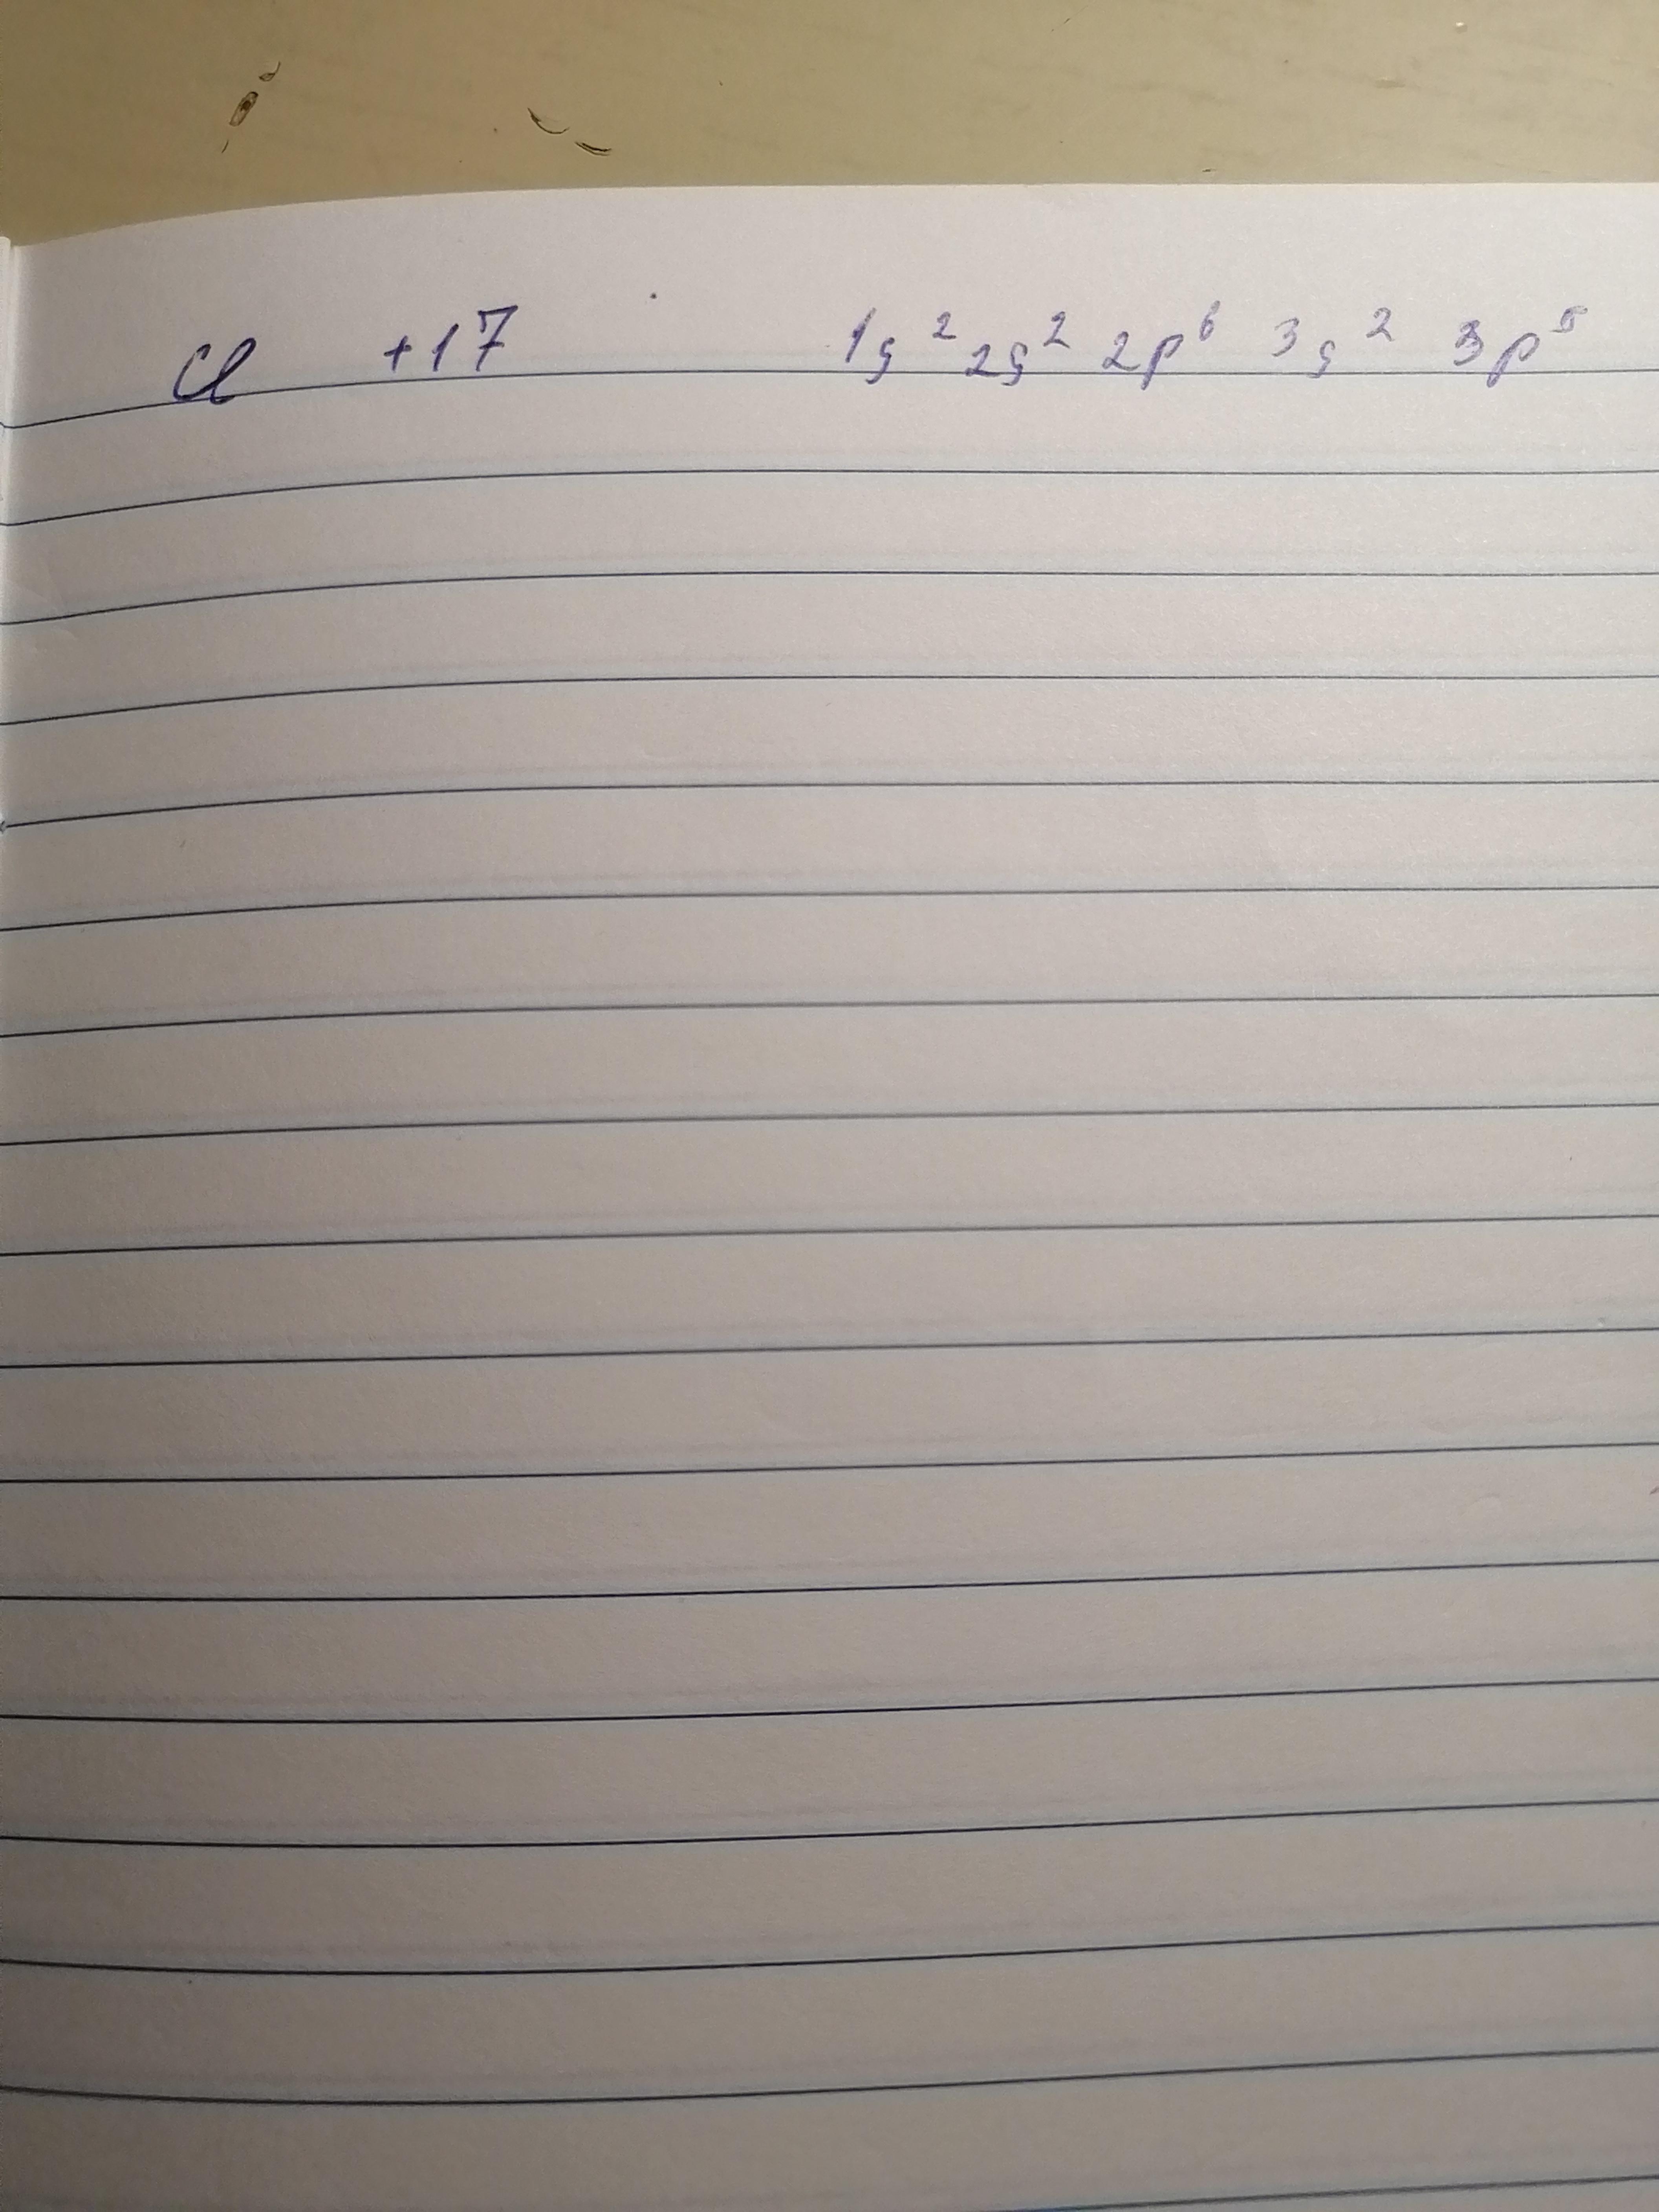 Cl +17 1s² 2s² 2p⁶ 3s² 3p⁵